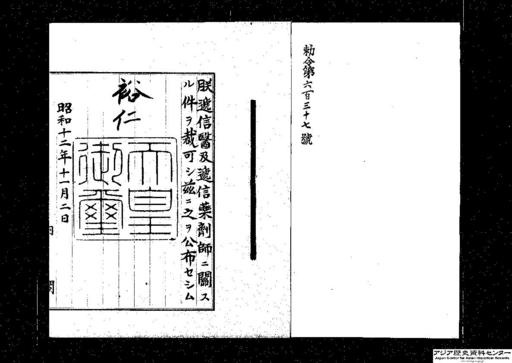 勅令第六百三十七號
朕遞信醫及遞信藥劑師ニ關ス
ル件ヲ裁可シ茲ニ之ヲ公布セシム
裕仁
天皇
御璽
昭和十二年十一月二日
内閣
アジア歴史資料センター
Japan Center for Asian Historical Records